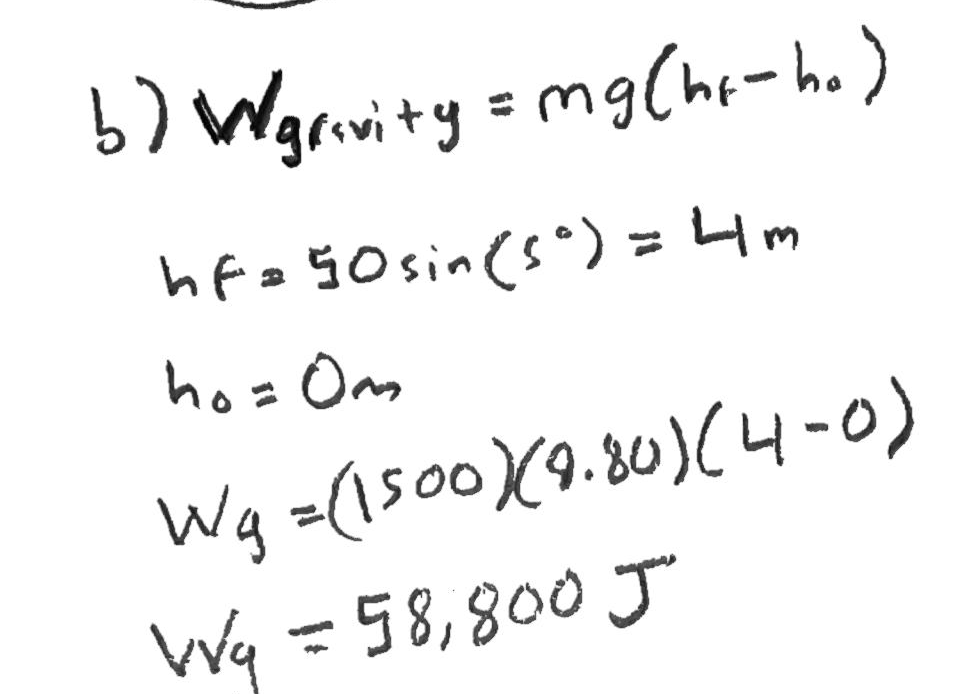 b) Wgravity = mg(hf - h₀)
hf = 50 sin(5°) = 4 m
h₀ = 0m
Wg = (1500)(9.80)(4-0)
Wg = 58,800 J